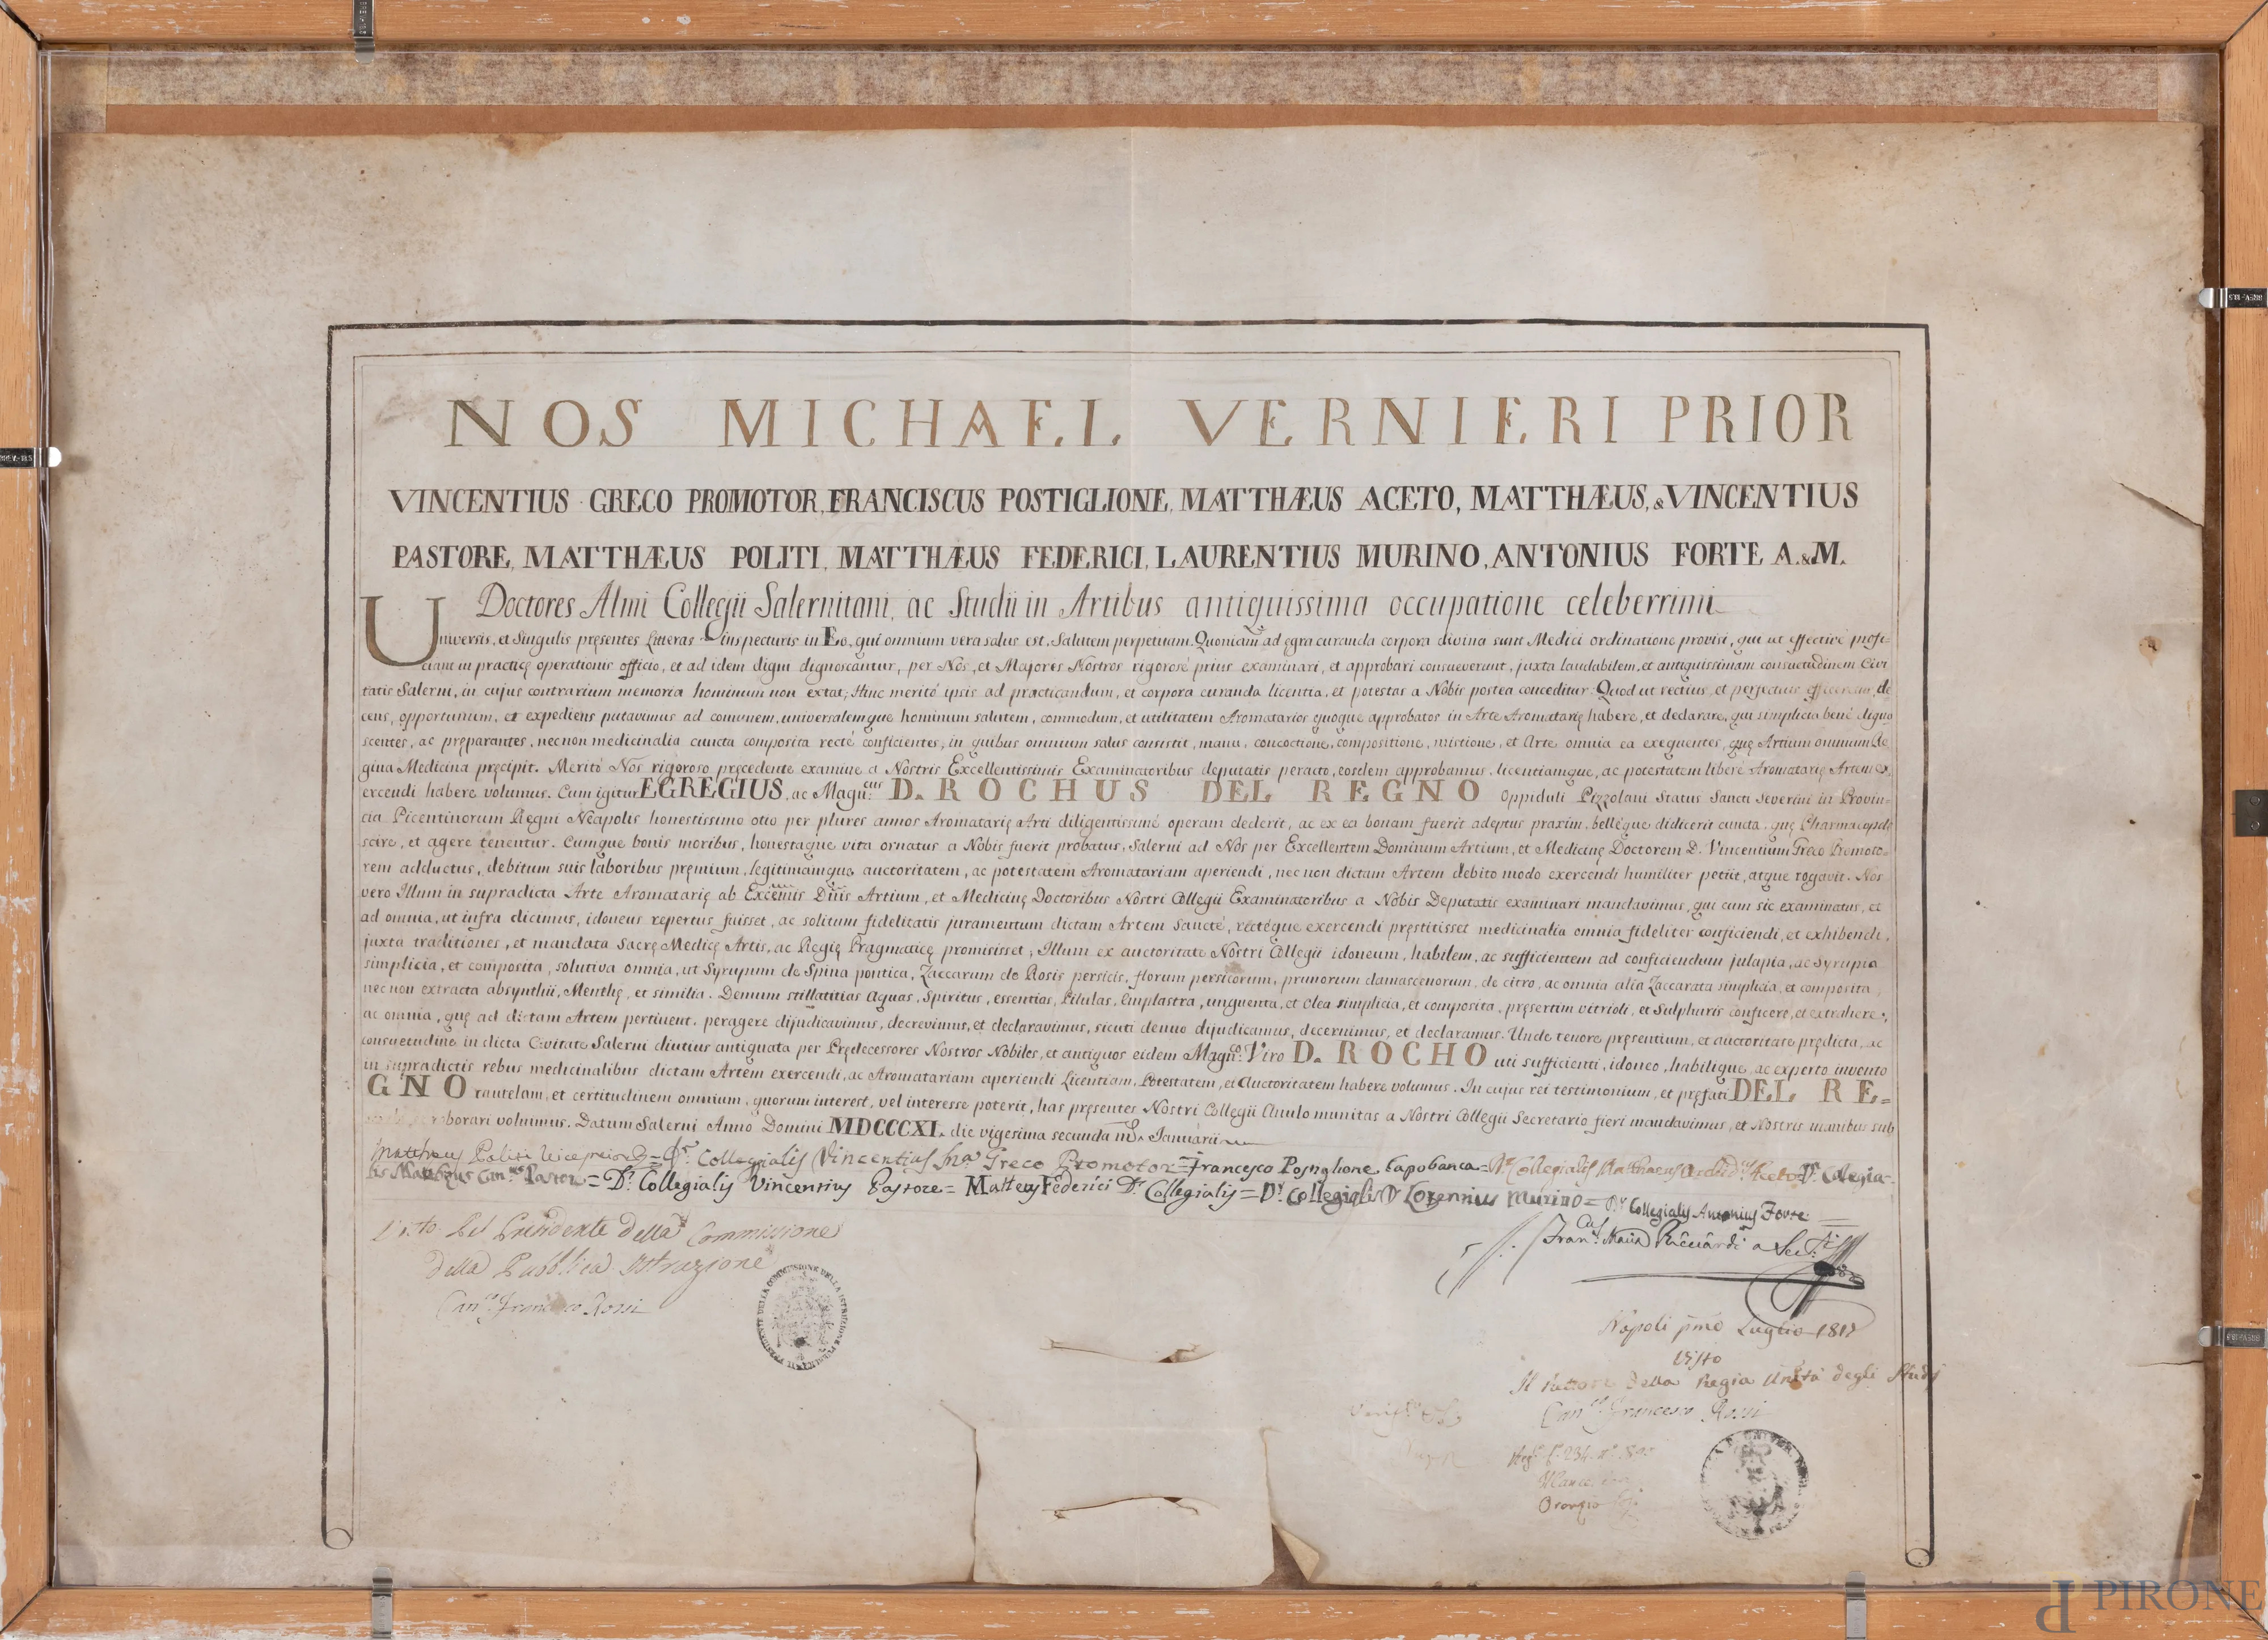 NOS MICHAEL VERNIERI PRIOR
VINCENTIUS GRECO PROMOTOR, FRANCISCUS POSTIGLIONE, MATTHÆUS ACETO, MATTHÆUS, & VINCENTIUS
PASTORE, MATTHÆUS POLITI, MATTHÆUS FEDERICI, LAURENTIUS MURINO, ANTONIUS FORTE A.&M.
Doctores Almi Collegii Salernitani, ac Studii in Artibus antiquissima occupatione celeberrimi
Universis, et Singulis pręsentes Litteras inspecturis in Eo, qui omnium vera salus est, Salutem perpetuam. Quoniam ad ęgra curanda corpora divina sunt Medici ordinatione provisi, qui ut effectivè profi-
ciant in practicę operationis officio, et ad idem digni dignoscantur, per Nos, et Majores Nostros rigorosè prius examinari, et approbari consueverunt, juxta laudabilem, et antiquissimam consuetudinem Civi
tatis Salerni, in cujus contrarium memoria hominum non extat; Hinc meritò ipsis ad practicandum, et corpora curanda licentia, et potestas a Nobis postea conceditur. Quod ut rectius, et perfectius de
cens, opportunum, et expediens putavimus ad comunem, universalemque hominum salutem, commodum, et utilitatem Aromatarios quoque approbatos in Arte Aromatarię habere, et declarare, qui simplicia benè digno
scentes, ac pręparantes, necnon medicinalia cuncta composita rectè conficientes, in quibus omnium salus consistit, manu, concoctione, compositione, mistione, et Arte omnia ea exequentes, quę Artium omnium Re
gina Medicina pręcipit. Meritò Nos rigoroso pręcedente examine a Nostris Excellentissimis Examinatoribus deputatis peracto, eosdem approbamus, licentiamque, ac potestatem liberè Aromatarię Artem ex
ercendi habere volumus. Cum igitur EGREGIUS, ac Magn:cus D. ROCHUS DEL REGNO Oppiduli Pizzolani Status Sancti Severini in Provin=
cia Picentinorum Regni Neapolis honestissimo otio per plures annos Aromatarię Arti diligentissimè operam dederit, ac ex ea bonam fuerit adeptus praxim, bellèque didicerit cuncta, quę Pharmacopolę
scire, et agere tenentur. Cumque bonis moribus, honestaque vita ornatus a Nobis fuerit probatus, Salerni ad Nos per Excellentem Dominum Artium, et Medicinę Doctorem D. Vincentium Greco Promoto=
rem adductus, debitum suis laboribus pręmium, legitimamque auctoritatem, ac potestatem Aromatariam aperiendi, nec non dictam Artem debito modo exercendi humiliter petiit, atque rogavit. Nos
vero Illum in supradicta Arte Aromatarię ab Excemis Dnis Artium, et Medicinę Doctoribus Nostri Collegii Examinatoribus a Nobis Deputatis examinari mandavimus, qui cum sic examinatus, et
ad omnia, ut infra dicimus, idoneus repertus fuisset, ac solitum fidelitatis juramentum dictam Artem Sanctè, rectèque exercendi pręstitisset medicinalia omnia fideliter conficiendi, et exhibendi,
juxta traditiones, et mandata Sacrę Medicę Artis, ac Regię Pragmaticę promisisset; Illum ex auctoritate Nostri Collegii idoneum, habilem, ac sufficientem ad conficiendum julapia, ac Syrupia
simplicia, et composita, solutiva omnia, ut Syrupum de Spina pontica, Zaccarum de Rosis persicis, florum persicorum, prunorum damascenorum, de citro, ac omnia alia Zaccarata simplicia, et composita,
nec non extracta absynthii, Menthę, et similia. Demum stillatitias aquas, Spiritus, essentias, Pilulas, Emplastra, unguenta, et Olea simplicia, et composita, pręsertim vitrioli, et Sulphuris conficere, et extrahere;
ac omnia, quę ad dictam Artem pertinent, peragere dijudicavimus, decrevimus, et declaravimus, sicuti denuo dijudicamus, decernimus, et declaramus. Unde tenore pręsentium, et auctoritate prędicta, ac
consuetudine in dicta Civitate Salerni diutius antiquata per Prędecessores Nostros Nobiles, et antiquos eidem Magn:co Viro D. ROCHO uti sufficienti, idoneo, habilique, ac experto invento
in supradictis rebus medicinalibus dictam Artem exercendi, ac Aromatariam aperiendi Licentiam, Potestatem, et Auctoritatem habere volumus. In cujus rei testimonium, et pręfati DEL RE=
GNO cautelam, et certitudinem omnium, quorum interest, vel interesse poterit, has pręsentes Nostri Collegii Anulo munitas a Nostri Collegii Secretario fieri mandavimus, et Nostris manibus sub
roborari volumus. Datum Salerni Anno Domini MDCCCXI. die vigesima secunda ms. Januarii
Mattheus Politi Viceprior = Dr. Collegialis Vincentius Ma. Greco Promotor = Francesco Postiglione Capobanca = Dr Collegialis Matthaeus Aceto Dr. Collegia-
lis Mattheus Pastore = Dr. Collegialis Vincentius Pastore = Matteus Federici Dr. Collegialis = Dr. Collegialis Dr Lorennius Murino = Dr Collegialis Antonius Forte
Fran.cus Maria Ricciardi a Sec.
Visto Il Presidente della Commissione
della Pubblica Istruzione
Can.co Francesco Rossi
PRESIDENTE DELLA COMMISSIONE DELLA ISTRUZIONE PUBBLICA
Napoli pmo Luglio 1817
Visto
Il Rettore della Regia Unità degli Studj
Can.co Francesco Rossi
PIRONE